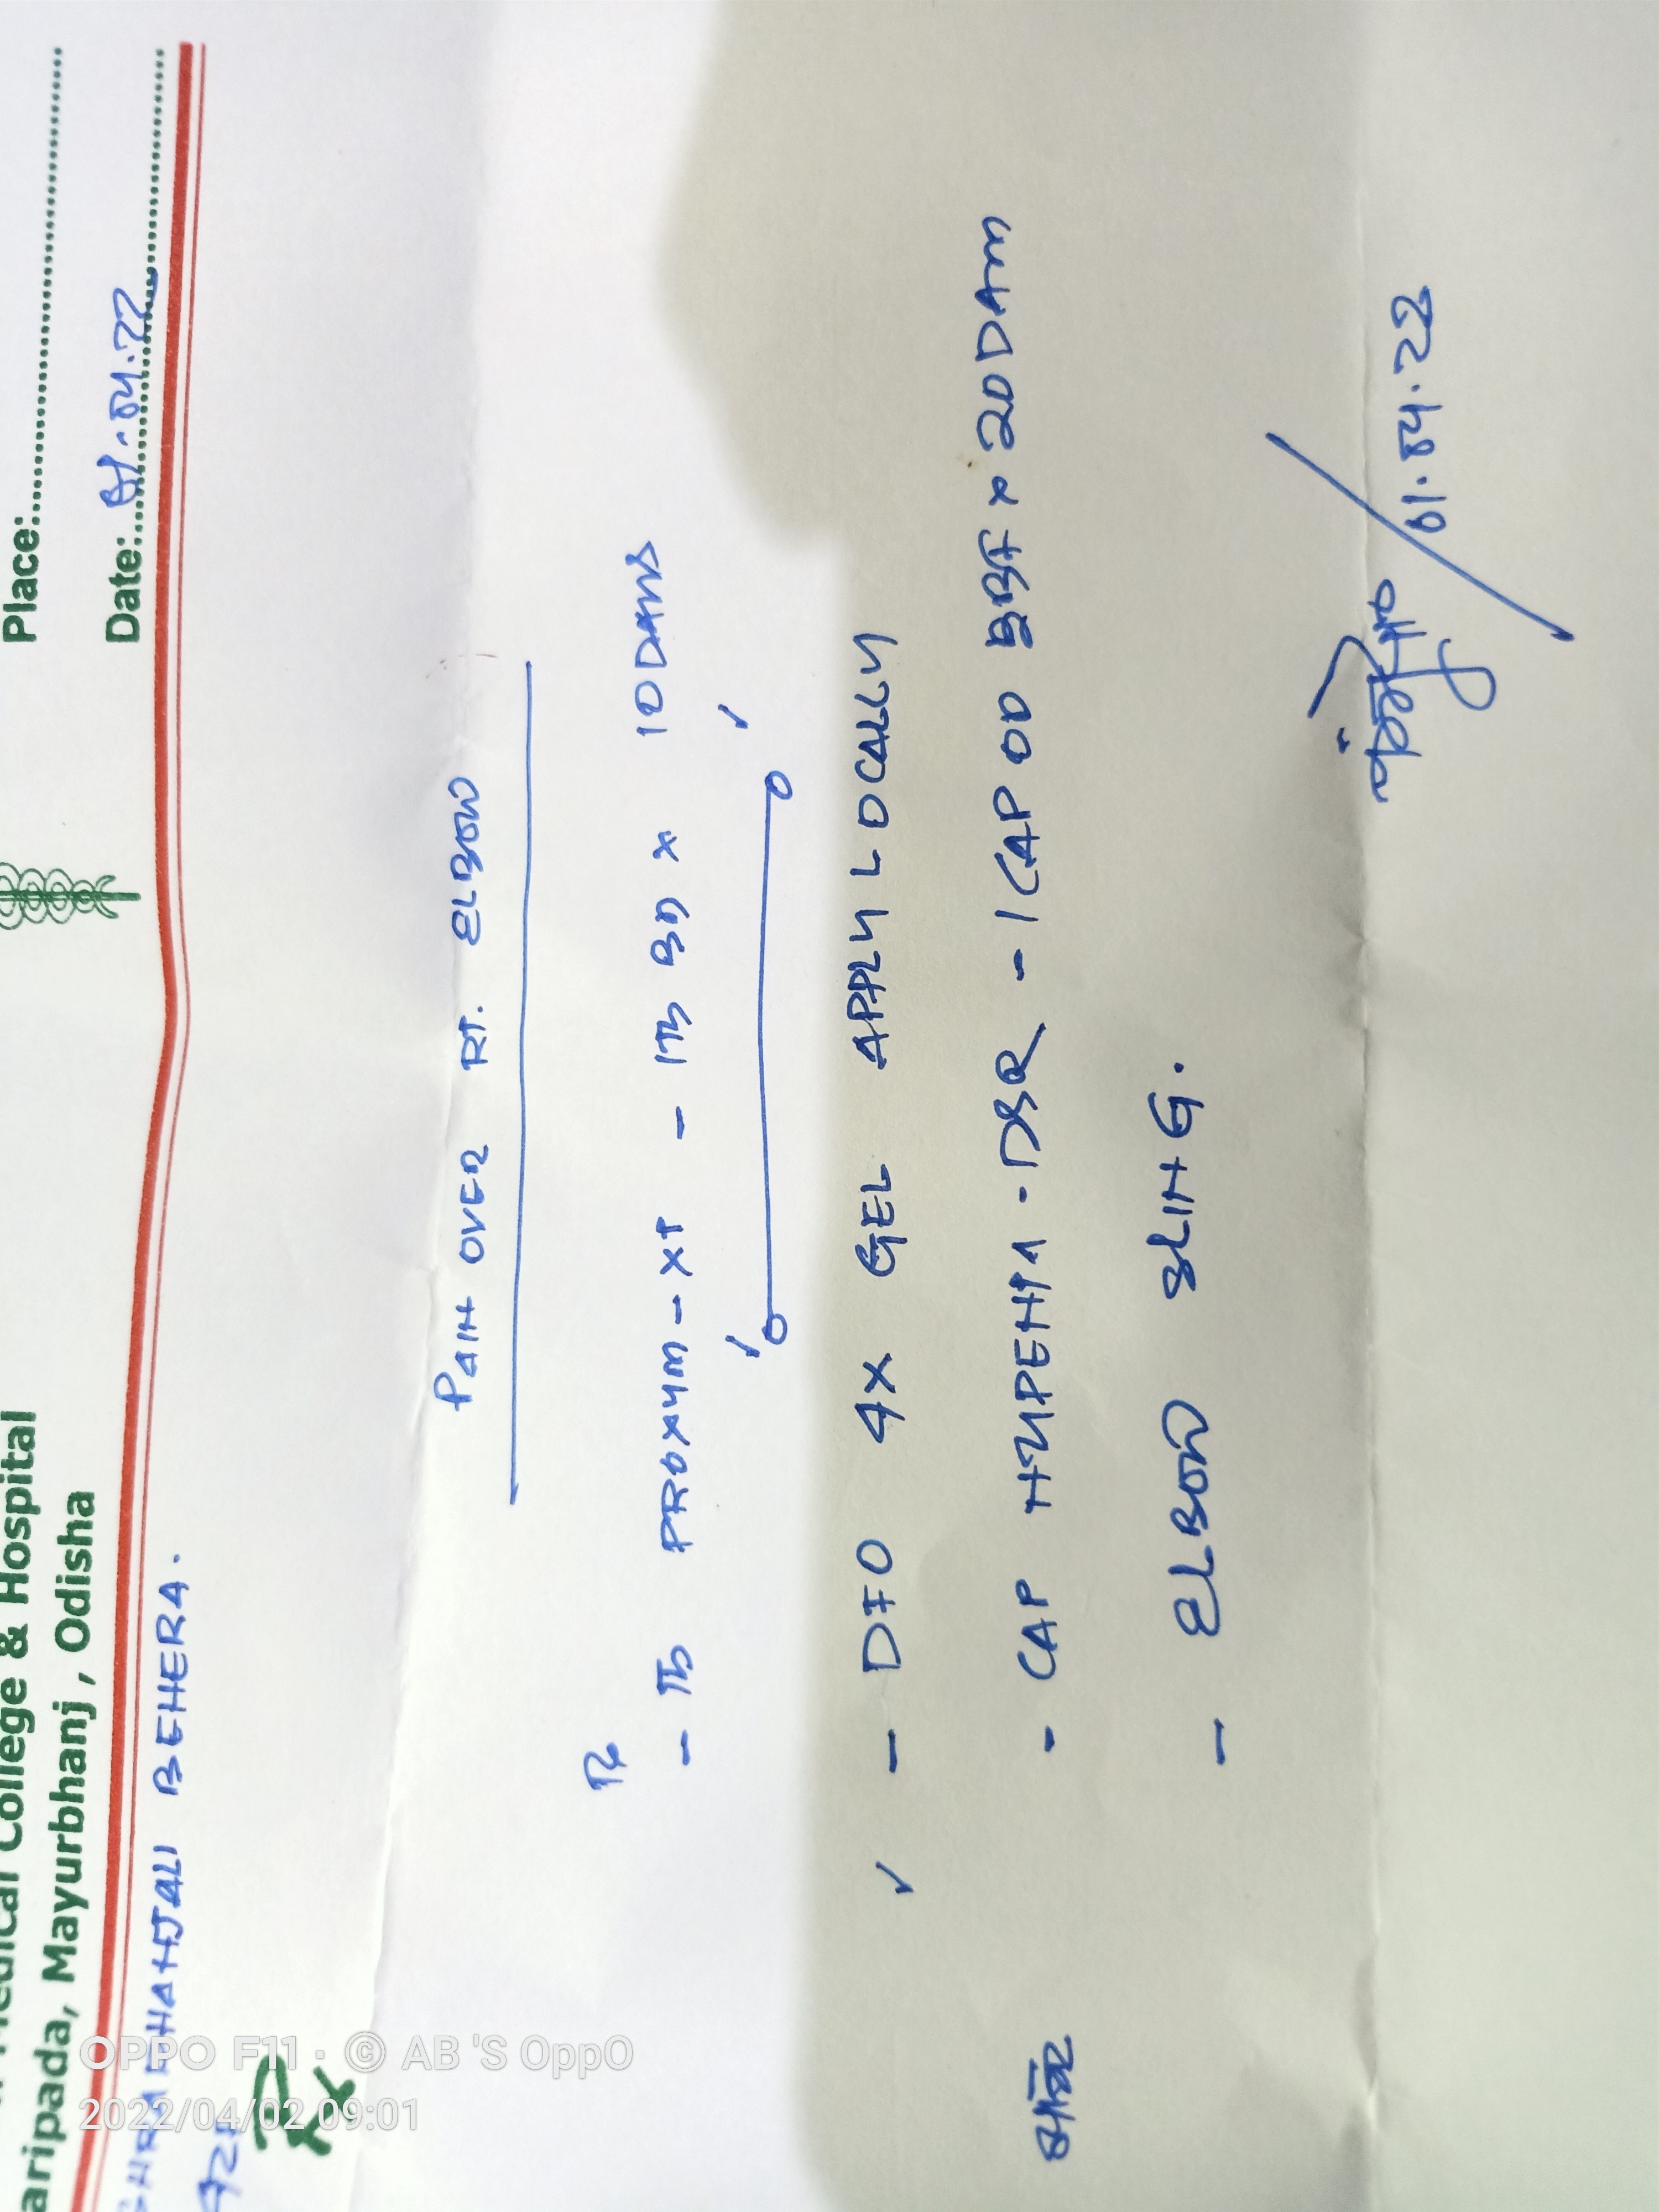 Medical College & Hospital
aripada, Mayurbhanj, Odisha
Place:
Date: 01.04.22
BEHERA.
Rx
PAIN OVER RT. ELBOW
Rx
- TB PROXYM-XT - 1TB BD x 10 DAYS
- DFO 4X GEL APPLY LOCALLY
- CAP - 1 CAP OD BBF x 20 DAYS
- ELBOW SLING.
01.04.22
OPPO F11 · © AB 'S OppO
2022/04/02 09:01